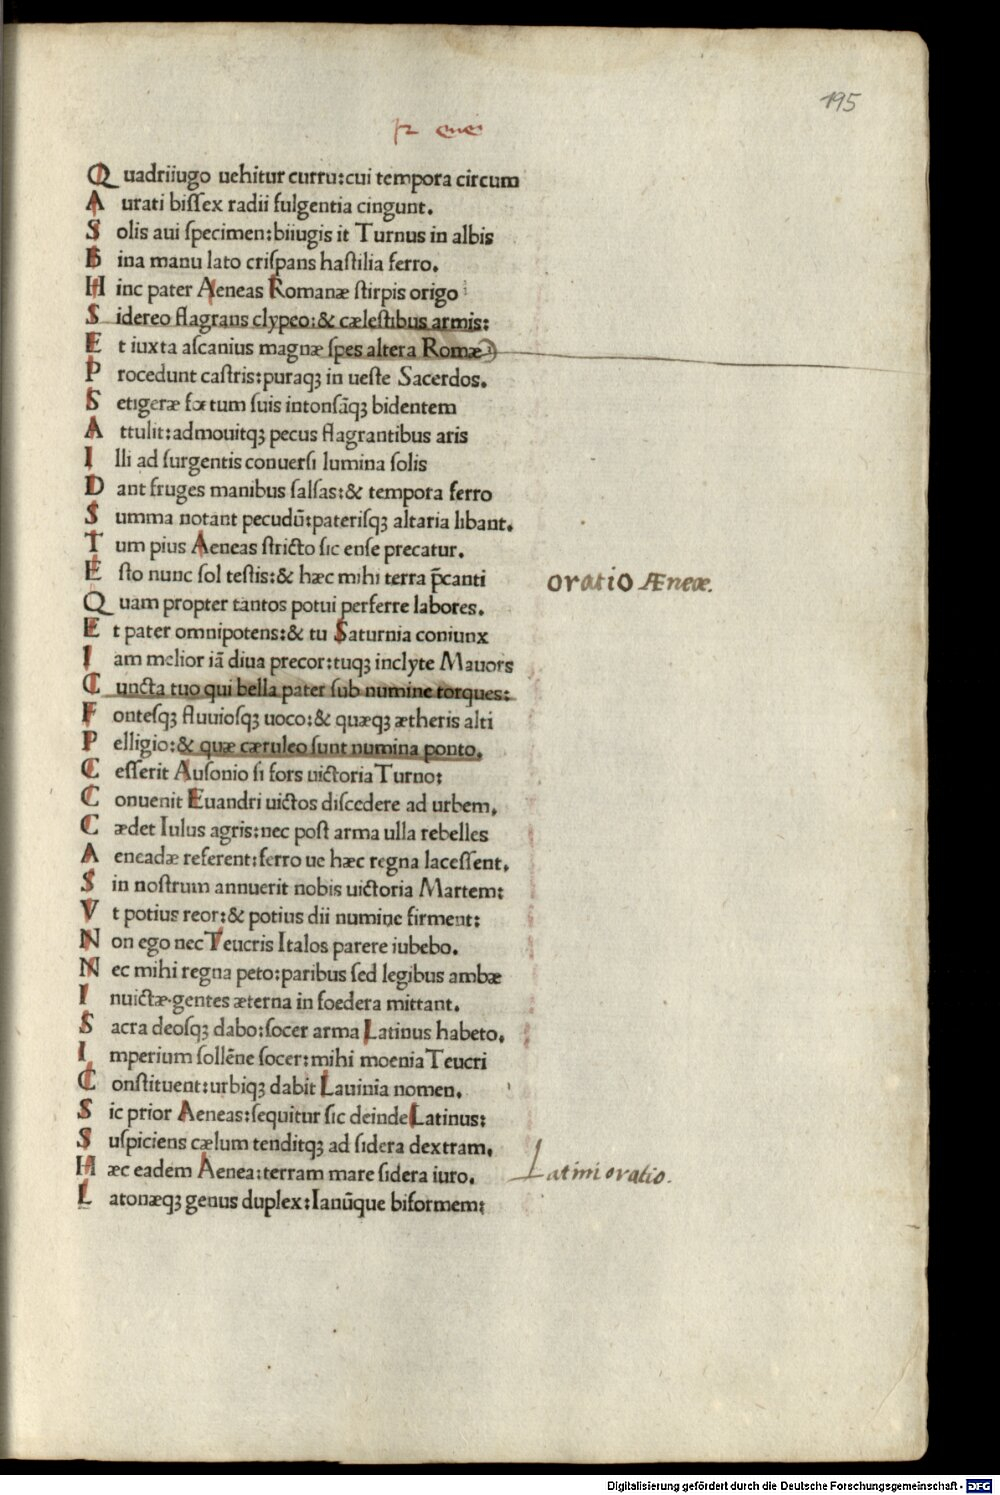 195
Quadriiugo uehitur curru:cui tempora circum
Aurati biſſex radii fulgentia cingunt.
Solis aui ſpecimen:biiugis it Turnus in albis
Bina manu lato criſpans haſtilia ferro.
Hinc pater Aeneas Romanæ ſtirpis origo
Sidereo flagrans clypeo:& cæleſtibus armis:
Et iuxta aſcanius magnæ ſpes altera Romæ
Procedunt caſtris:puraqꝫ in ueſte Sacerdos.
Setigeræ fœtum ſuis intonſāqꝫ bidentem
Attulit:admouitqꝫ pecus flagrantibus aris
Illi ad ſurgentis conuerſi lumina ſolis
Dant fruges manibus ſalſas:& tempora ferro
Summa notant pecudū:pateriſqꝫ altaria libant.
Tum pius Aeneas ſtricto ſic enſe precatur.
Eſto nunc ſol teſtis:& hæc mihi terra p̄canti
oratio Æneæ.
Quam propter tantos potui perferre labores.
Et pater omnipotens:& tu Saturnia coniunx
Iam melior iā diua precor:tuqꝫ inclyte Mauors
Cuncta tuo qui bella pater ſub numine torques:
Fonteſqꝫ fluuioſqꝫ uoco:& quæqꝫ ætheris alti
Pelligio:& quæ cæruleo ſunt numina ponto.
Ceſſerit Auſonio ſi fors uictoria Turno:
Conuenit Euandri uictos diſcedere ad urbem.
Cædet Iulus agris:nec poſt arma ulla rebelles
Aeneadæ referent:ferro ue hæc regna laceſſent.
Sin noſtrum annuerit nobis uictoria Martem:
Vt potius reor:& potius dii numine firment:
Non ego nec Teucris Italos parere iubebo.
Nec mihi regna peto:paribus ſed legibus ambæ
Inuictæ.gentes æterna in foedera mittant.
Sacra deoſqꝫ dabo:ſocer arma Latinus habeto.
Imperium ſollēne ſocer:mihi moenia Teucri
Conſtituent:urbiqꝫ dabit Lauinia nomen.
Sic prior Aeneas:ſequitur ſic deinde Latinus:
Suſpiciens cælum tenditqꝫ ad ſidera dextram.
Hæc eadem Aenea:terram mare ſidera iuro.
Latini oratio.
Latonæqꝫ genus duplex:Ianūque biformem:
Digitalisierung gefördert durch die Deutsche Forschungsgemeinschaft - DFG